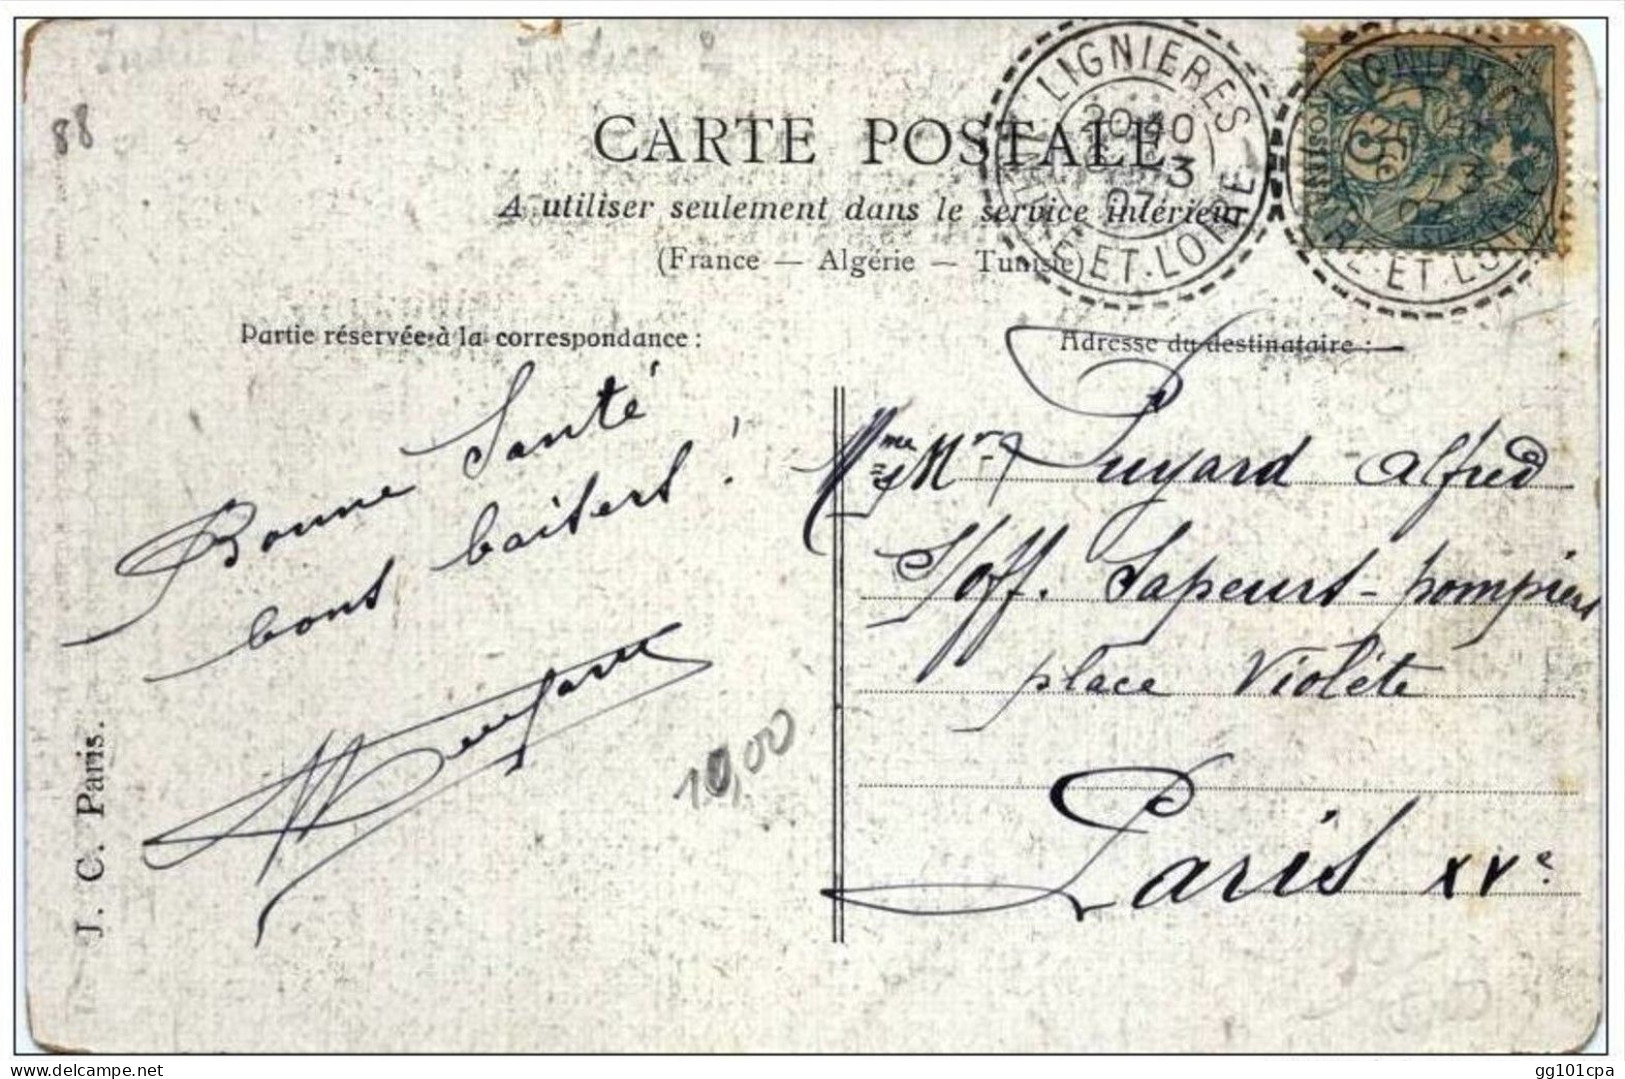 88
CARTE POSTALE
A utiliser seulement dans le service intérieur
(France — Algérie — Tunisie)
LIGNIERES
20 40
3
07
INDRE-ET-LOIRE
5c
Partie réservée à la correspondance :
Adresse du destinataire :
Bonne Santé
bons baisers !
10,00
J. C. Paris.
Mme & Mr Puyard Alfred
S/off. Sapeurs-pompiers
place Violéte
Paris XVe
gg101cpa